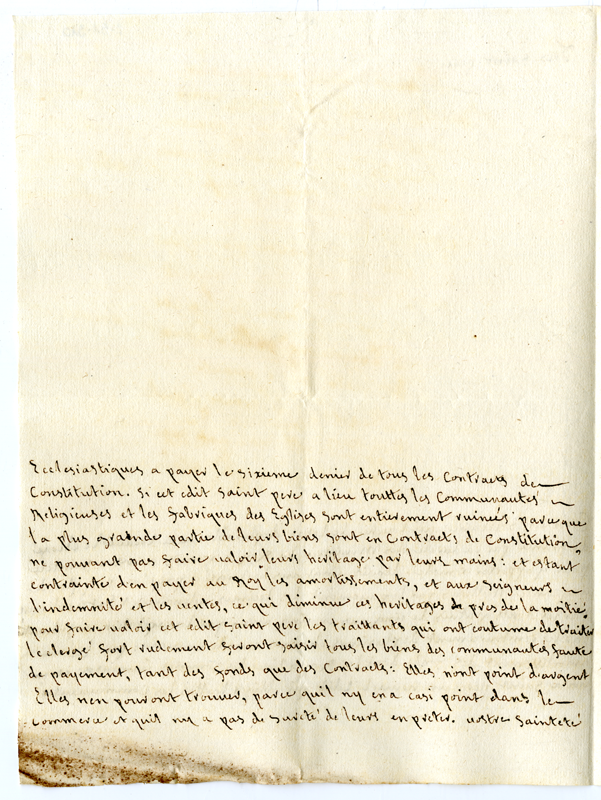 Ecclesiastiques a payer le sixieme denier de tous les Contracts de
Constitution. Si cet edit saint pere a lieu touttes les Communautés
Religieuses et les fabriques des Eglises sont entierement ruinées parceque
la plus grande partie de leurs biens sont en Contracts de Constitution
ne pouvant pas faire valoir leurs heritage par leurs mains: et estant
contrainte d'en payer au Roy les amortissements, et aux Seigneurs
l'indemnité et les ventes, ce qui diminue ces heritages de pres de la moitié,
pour faire valoir cet edit saint pere les traittants qui ont coutume de traiter
le clergé fort rudement feront saisir tous les biens des communautés faute
de payement, tant des fonds que des Contracts: Elles n'ont point d'argent
Elles n'en pouront trouver, parce quil ny en a casi point dans le
commerce et quil ny a pas de sureté de leurs en preter. vostre Sainteté